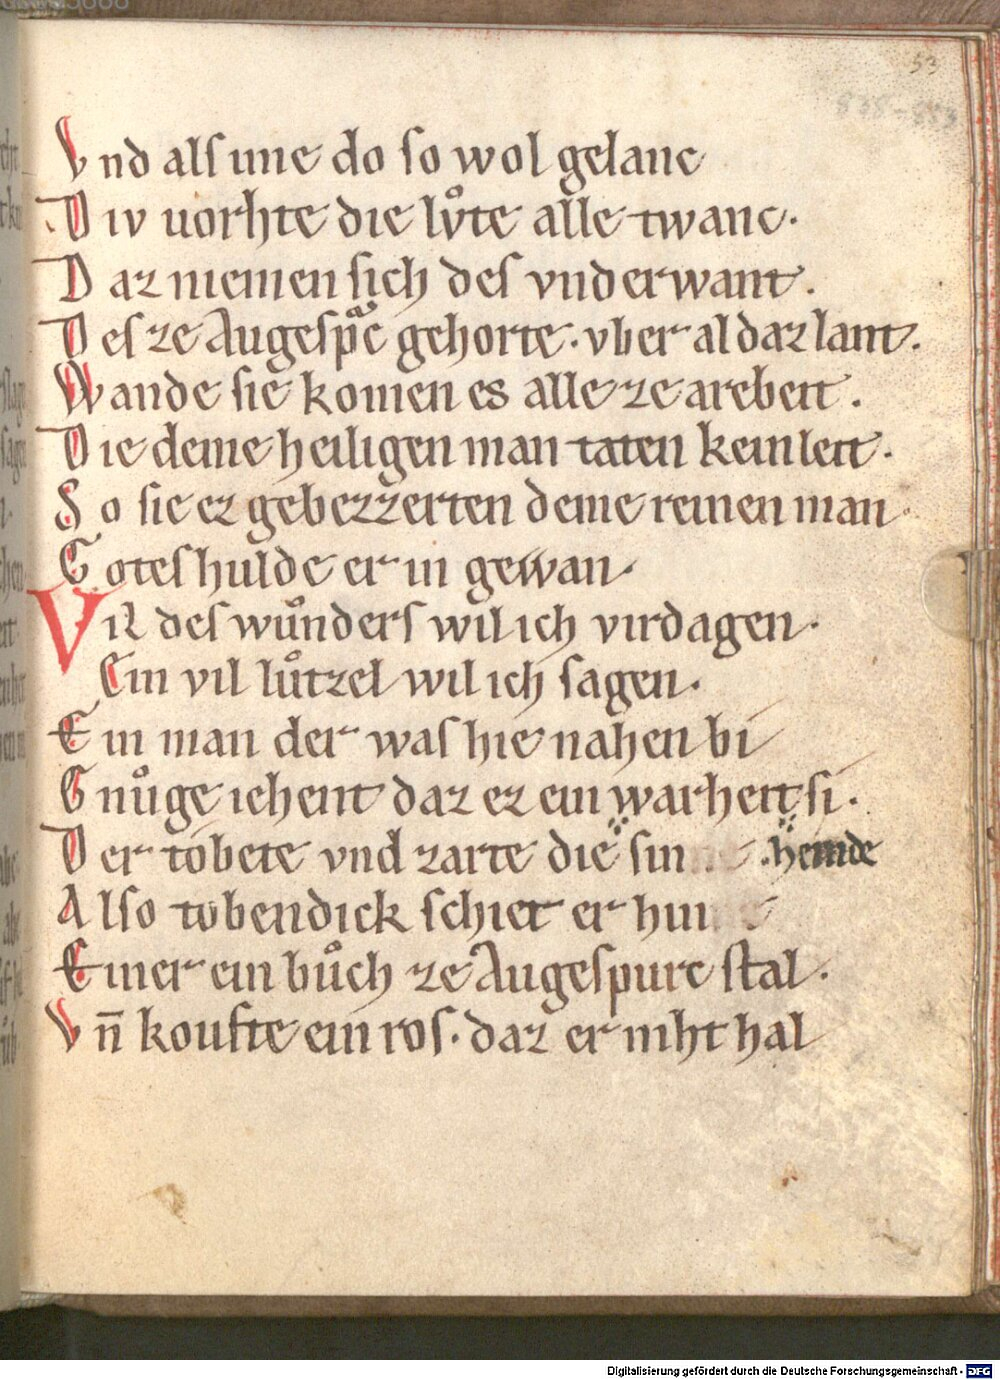 53
838-853
Vnd alſ ime do ſo wol gelanc
Div uorhte die lvͦte alle twanc.
Daz niemen ſich deſ vnderwant.
Deſ ze Augeſpᵃc gehorte. vber al daz lant.
Wande ſie komen es alle ze arebeit.
Die deme heiligen man taten kein leit.
So ſie ez gebezzerten deme reinen man
Goteſ hulde er in gewan.
ViL deſ wuͦnderſ wil ich virdagen.
Ein vil luͦtzel wil ich ſagen.
Ein man der waſ hie nahen bi
Gnuͦge iehent daz ez ein warheit ſi.
Der tobete vnd zarte die ſin .. hemde
Alſo tobendick ſchiet er hin
Einer ein buͦch ze Augeſpurc ſtal.
Vn̄ koufte ein roſ. daz er niht hal
Digitalisierung gefördert durch die Deutsche Forschungsgemeinschaft - DFG